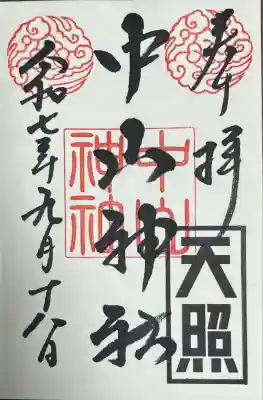 奉拝
天照
中山神社
中山
神社
令和七年九月十八日